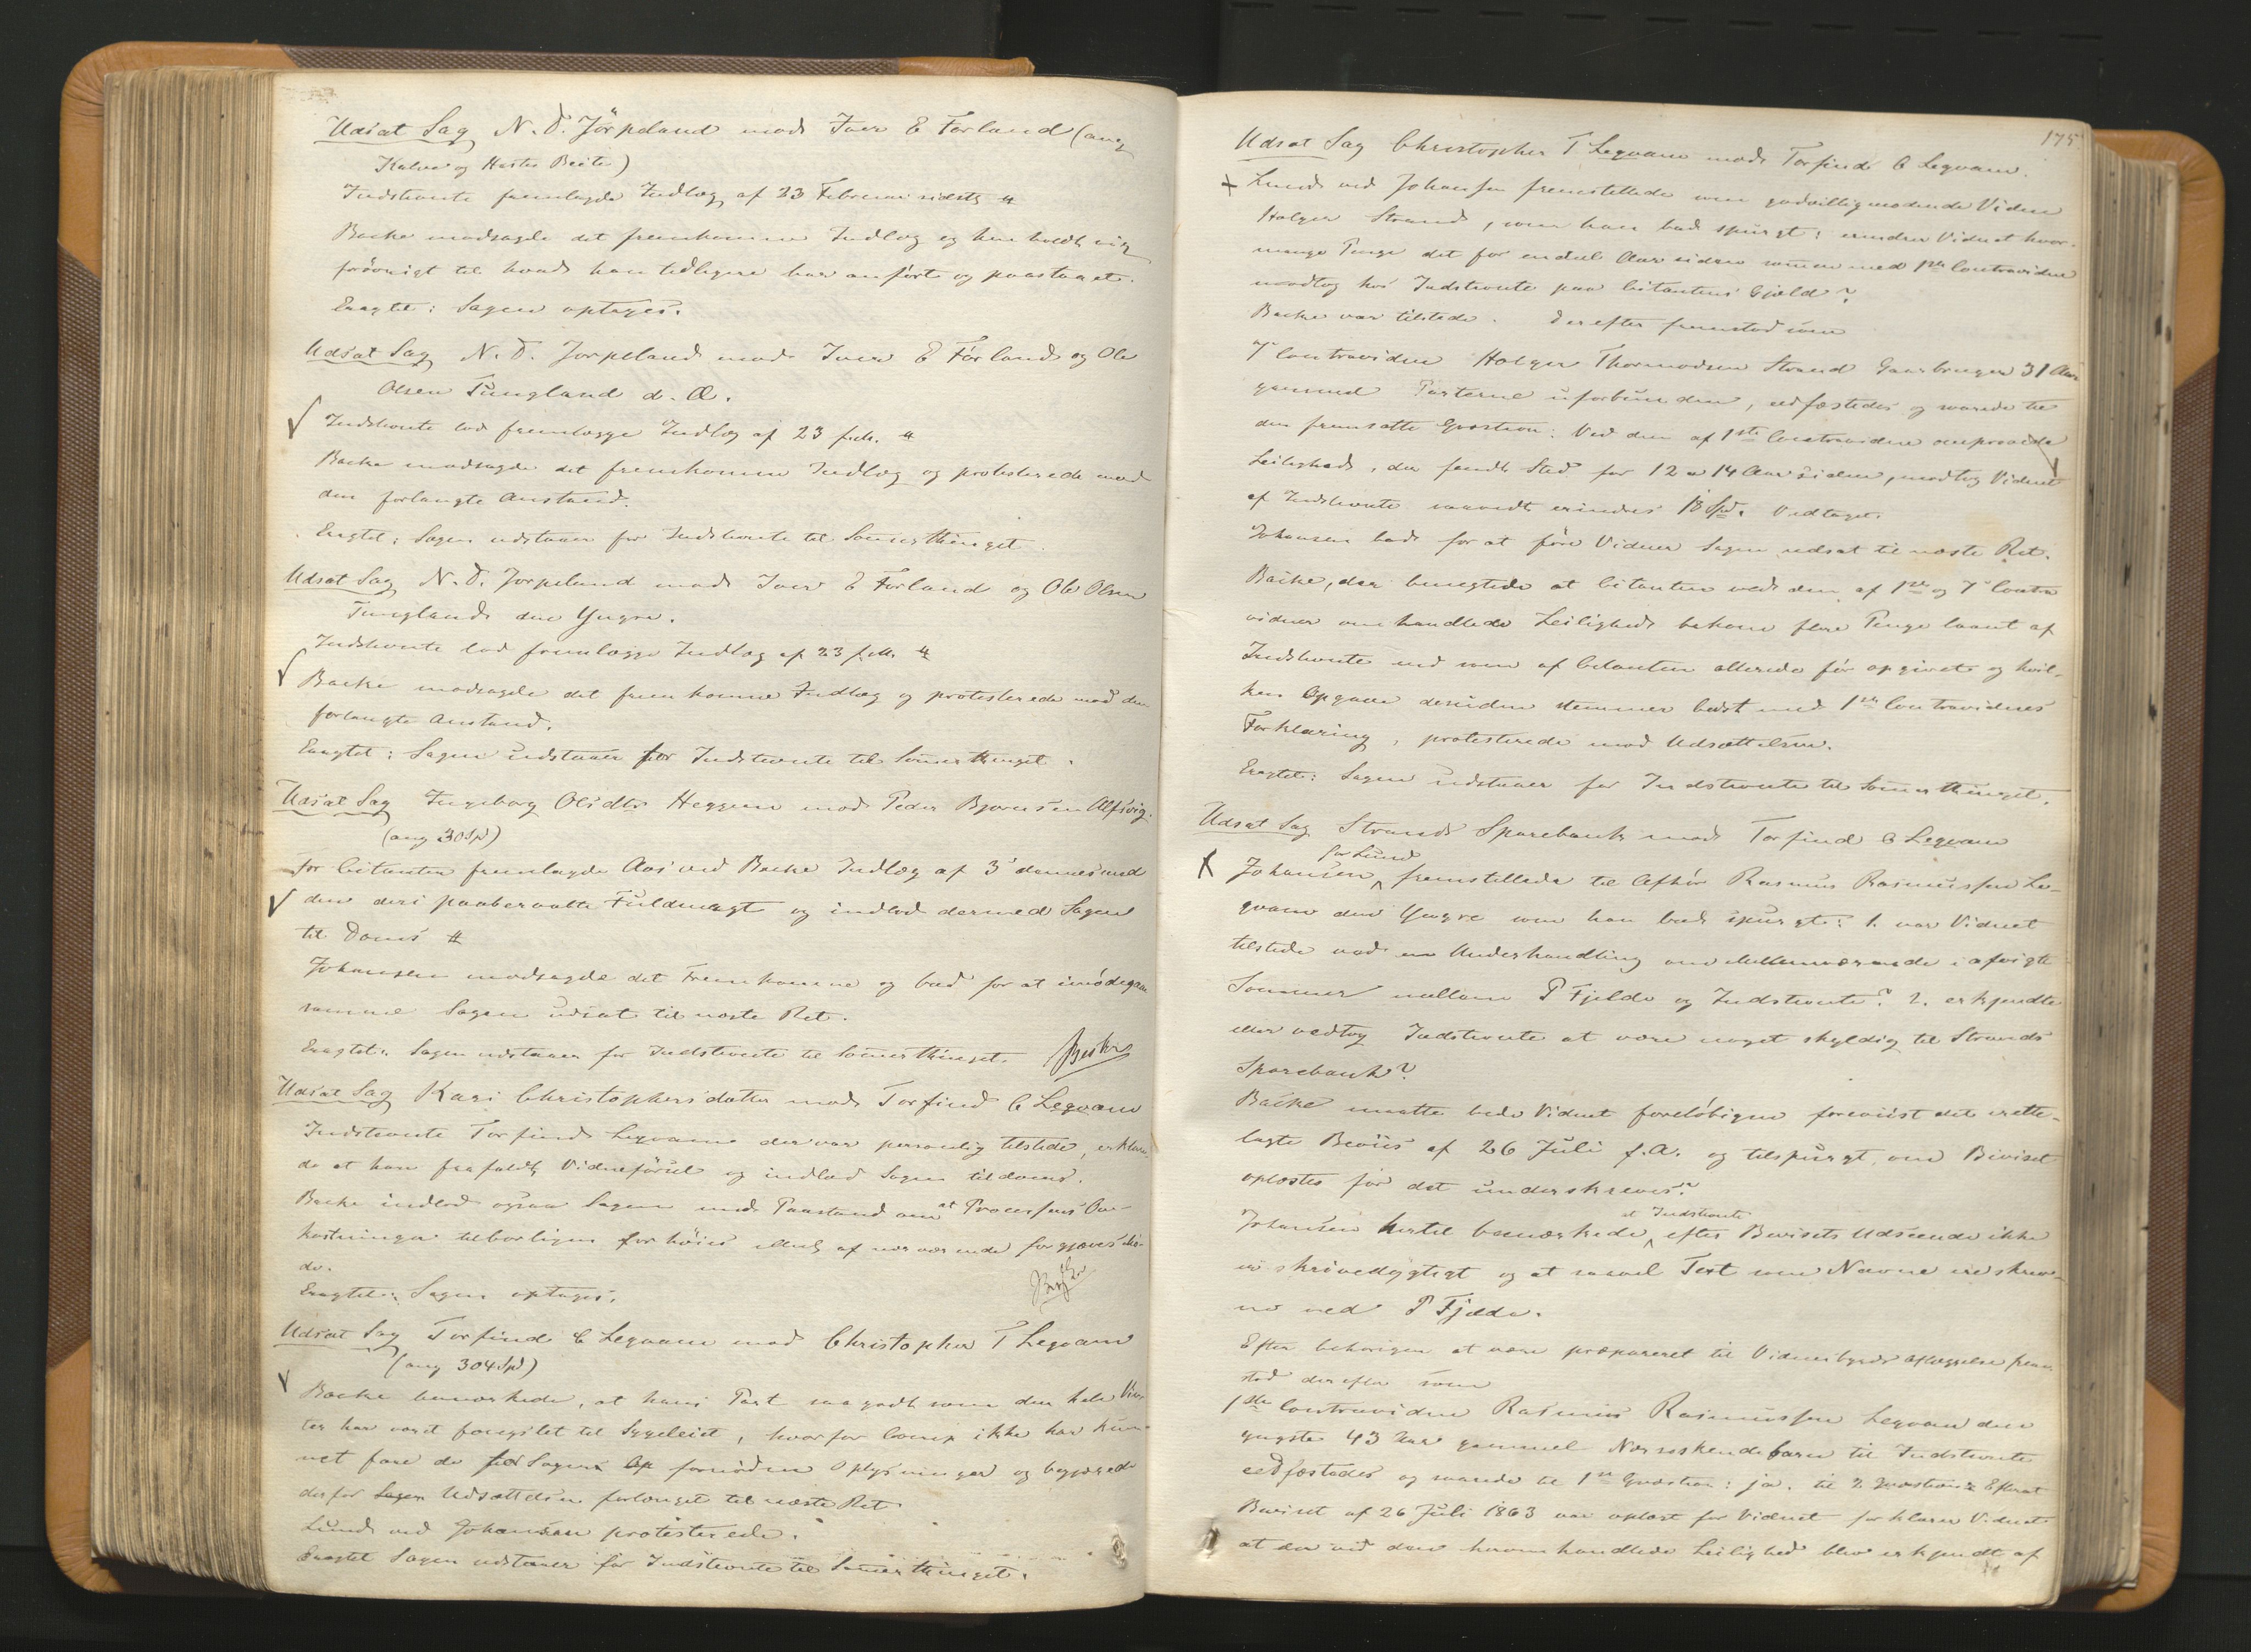 Udsat Sag N. D. Jörpeland mod Iver E Forland (ang
Kalve og Hastes Beite)
Indstevnte fremlagde Indlæg af 23 Februar sidstl. #
Backe modsagde det fremkomne Indlæg og henholdt sig
forövrigt til hvad han tidligere har anfört og paastaaet.
Eragtet: Sagen optages.
Udsat Sag N. D. Jorpeland mod Iver E Förland og Ole
Olsen Tungland d. Æ.
Indstevnte lod fremlægge Indlæg af 23 f.M. #
Backe modsagde det fremkomne Indlæg og protesterede mod
den forlangte Anstand.
Eragtet: Sagen udstaaer for Indstevnte til Somerthinget.
Udsat Sag N. D. Jorpeland mod Iver E Forland og Ole Olsen
Tungland den Yngre.
Indstevnte lod fremlægge Indlæg af 23 f.M. #
Backe modsagde det fremkomne Indlæg og protesterede mod den
forlangte Anstand.
Eragtet: Sagen udstaaer for Indstevnte til Somerthinget.
Udsat Sag Ingeborg Olsdtr Heggem mod Peder Bjørnsen Alfsvig.
(ang 30 Spd)
For Citanten fremlagde Aas ved Backe Indlæg af 3' dennes med
den deri paaberaabte Fuldmagt og indlod dermed Sagen
til Doms #
Johansen modsagde det Fremkomne og bad for at imödegaa
samme Sagen udsat til næste Ret.
Eragtet: Sagen udstaaer for Indstevnte til Somerthinget.
Udsat Sag Kari Christophersdatter mod Torfind C Leqvam
Indstevnte Torfind Leqvam der var personlig tilstede, erklære-
de at han frafaldt Vidneförsel og indlod Sagen til doms.
Backe indlod ogsaa Sagen med Paastand om at Processens Om-
kostninger tilbørligen forhöies
de.
Eragtet: Sagen optages.
Udsat Sag Torfind C Leqvam mod Christopher T Leqvam
(ang 304 Spd)
Backe bemærkede, at hans Part saagodt som den hele Vin-
ter har været fængslet til Sygeleiet, hvorfor Comp ikke har kun-
net fore de for Sagen fornödne Oplysninger og begjærede
derfor Udsættelsen forlænget til næste Ret.
Lund ved Johansen protesterede.
Eragtet Sagen udstaaer for Indstevnte til Somerthinget.
175
Udsat Sag Christopher T Leqvam mod Torfind C Leqvam.
Lund ved Johansen fremstillede som godvilligmødende Vidne
Holger Strand, som han bad spurgt: erindrer Vidnet hvor-
mange Penge det for endeel Aar siden sammen med 1ste Contravidne
modtog hos Indstevnte paa Citantens Gjæld?
Backe var tilstede. Derefter fremstod som
7' Contravidne Holger Thormodsen Strand Gaardbruger 31 Aar
gammel Parterne uforbunden, edfæstedes og svarede til
den fremsatte Qvæstion: Ved den af 1ste Contravidne omprovede
Leilighed, der fandt Sted for 12 a 14 Aar siden, modtog Vidnet
af Indstevnte saavidt erindres 18 Spd. Vedtaget.
Johansen bad for at före Vidner Sagen udsat til næste Ret.
Backe, der benegtede at Citanten ved den af 1ste og 7' Contra
vidner omhandlede Leilighed bekom flere Penge laant af
Indstevnte end som af Citanten allerede för opgivet og hvil-
ken Opgave desuden stemmer bedst med 1ste Contravidnes
Forklaring, protesterede mod Udsættelsen.
Eragtet: Sagen udstaaer for Indstevnte til Somerthinget.
Udsat Sag Strands Sparebank mod Torfind C Leqvam
for Lund
Johansen fremstillede til Afhör Rasmus Rasmussen Le-
qvam den Yngre som han bad spurgt: 1. var Vidnet
tilstede ved en Underhandling om Mellemværende i afvigte
Sommer mellem P Fjelde og Indstevnte? 2. erkjendte
eller vedtog Indstevnte at være noget skyldig til Strands
Sparebank?
Backe maatte bede Vidnet forelöbigen foreviist det irette-
lagte Beviis af 26 Juli f.A. og tilspurgt, om Beviset
oplæstes för det underskreves?
at Indstevnte
Johansen hertil bemærkede efter Bevisets Udseende ikke
er skrivedygtigt og at saavel Text som Navne ere skrev-
ne ved P Fjelde.
Efter behørigen at være præpareret til Vidnesbyrds aflæggelse frem-
stod derefter som
1ste Contravidne Rasmus Rasmussen Leqvam den
yngste 43 Aar gammel Næssøskendebarn til Indstevnte
edfæstedes og svarede til 1ste Qvæstion: ja. til 2 Qvæstion: Efterat
Beviset af 26 Juli 1863 var oplæst for Vidnet forklarer Vidnet
at der ved den heromhandlede Leilighed blev erkjendt af